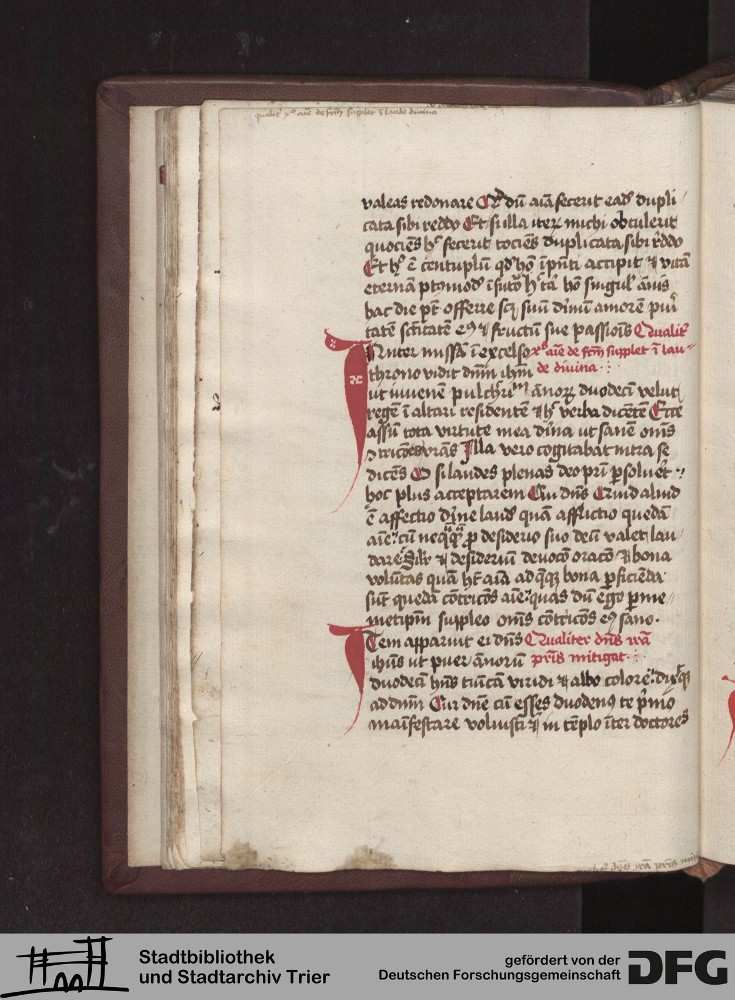 qualit' xp̄s aīe defectū supplet ī laude diuina
valeas redonare Cū dū aīa fecerit eadē dupli
cata sibi reddo Et si illa iterū michi obtulerit
quociēs hͦ fecerit tociēs duplicata sibi r̄ddo
Et hͦ ē centuplū qd hō ī p̄nti accipit & vitā
eternā
bac die pt̄ offerre suū amorē
tatē scītatē eꝯ & fructū sue passiōis Qualit'
Inter missā ī excelso xp̄s aīe defectū supplet ī lau
throno vidit dnm ihm de diuina
ut iuuenē pulcherimū ānorū duodecī velut
regē ī altari residentē & hͦ verba dicētē Ecce
assū tota virtute mea dīna ut sanē om̄s
ꝯtricōes vrās Illa vero cogitabat intra se
dicēs O si laudes plenas deo prī ꝑsoluēt
hoc plus acceptarem Cui dns Quid aliud
ē affectio dīne laud' quā afflictio quedā
aīe cū neq̄q̄ꝫ p̄ desiderio suo deū valet lau
dare Sil'r & desideriū deuocō oracō & bona
volūtas quā ht aīa ad q̄q̄ꝫ bona ꝑficiēda
sūt quedā cōtricōs aīe quas dū ego ꝑ me
metipm̄ suppleo om̄s cōtricōs eꝯ sano.
Item apparuit ei dns Qualiter dns irā
ihūs ut puer ānorū pr̄is mitigat
duodecī hn̄s tunīcā viridi & albo colore dixitqꝫ
ad dnm̄ Cur dne cū esses duodenꝯ te p'mo
maīfestare voluisti & in tēplo īter doctores
Stadtbibliothek
und Stadtarchiv Trier
gefördert von der
Deutschen Forschungsgemeinschaft
DFG